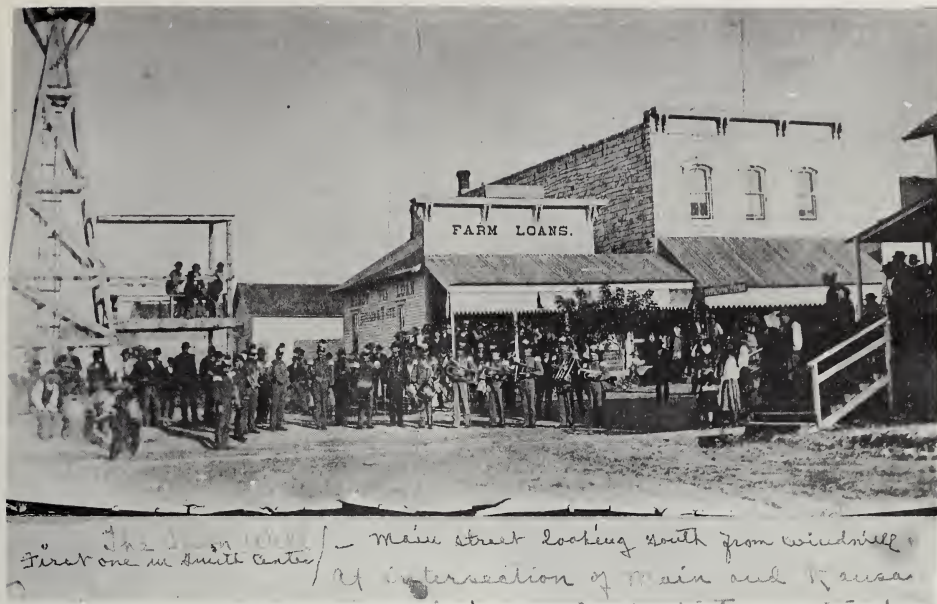 FARM LOANS.
LOAN
The Town Well
First one in Smith Center
Main street looking south from windmill.
At intersection of Main and Kansa